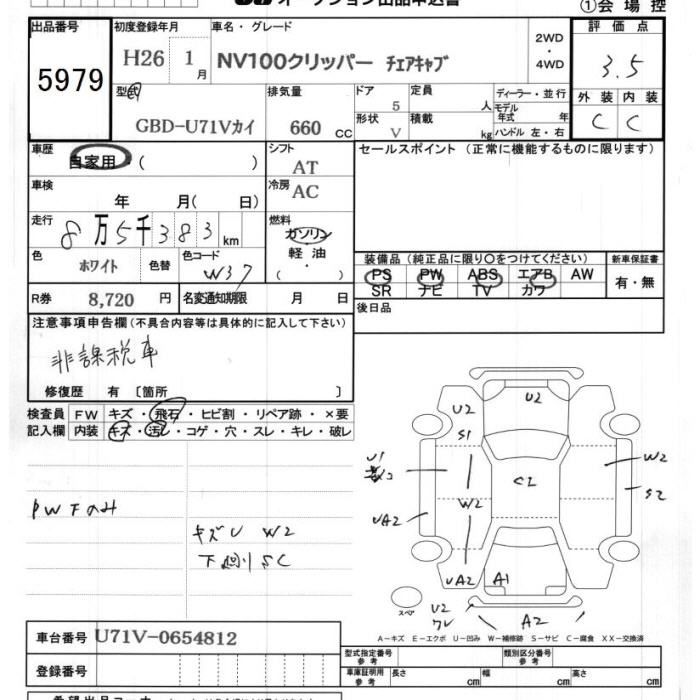 オークション出品申込書
①会場控
出品番号 初度登録年月 車名・グレード 評価点
5979 H26 1月 NV100クリッパー チェアキャブ 2WD・4WD 3.5
型式 排気量 ドア 定員 ディーラー・並行 外装 内装
GBD-U71Vカイ 660 CC 5 人 モデル年式 年 C C
形状 V 積載 kg ハンドル 左・右
車歴 シフト セールスポイント (正常に機能するものに限ります)
自家用・( ) AT
車検 冷房
年 月( 日) AC
走行 燃料
8万5千383km ガソリン
色 色コード 軽油 装備品 (純正品に限り○をつけてください) 新車保証書
ホワイト 色替 W37 ( ・ ) PS PW ABS エアB AW 有・無
SR ナビ TV カワ
R券 8,720 円 名変通知期限 月 日 後日品
注意事項申告欄 (不具合内容等は具体的に記入して下さい)
非課税車
修復歴 有 〔箇所 〕
検査員 FW キズ・飛石・ヒビ割・リペア跡・×要
記入欄 内装 キズ・汚レ・コゲ・穴・スレ・キレ・破レ
U2 U2
S1
U1 W2
C2
S2
PWFのみ W2
UA2
キズU W2
下廻りSC
UA2 A1
スペア U2 A2
A－キズ E－エクボ U－凹み W－補修跡 S－サビ C－腐食 XX－交換済
車台番号 U71V-0654812
型式指定番号 参考 類別区分番号 参考
登録番号 車庫証明用 参考 長さ cm 幅 cm 高さ cm